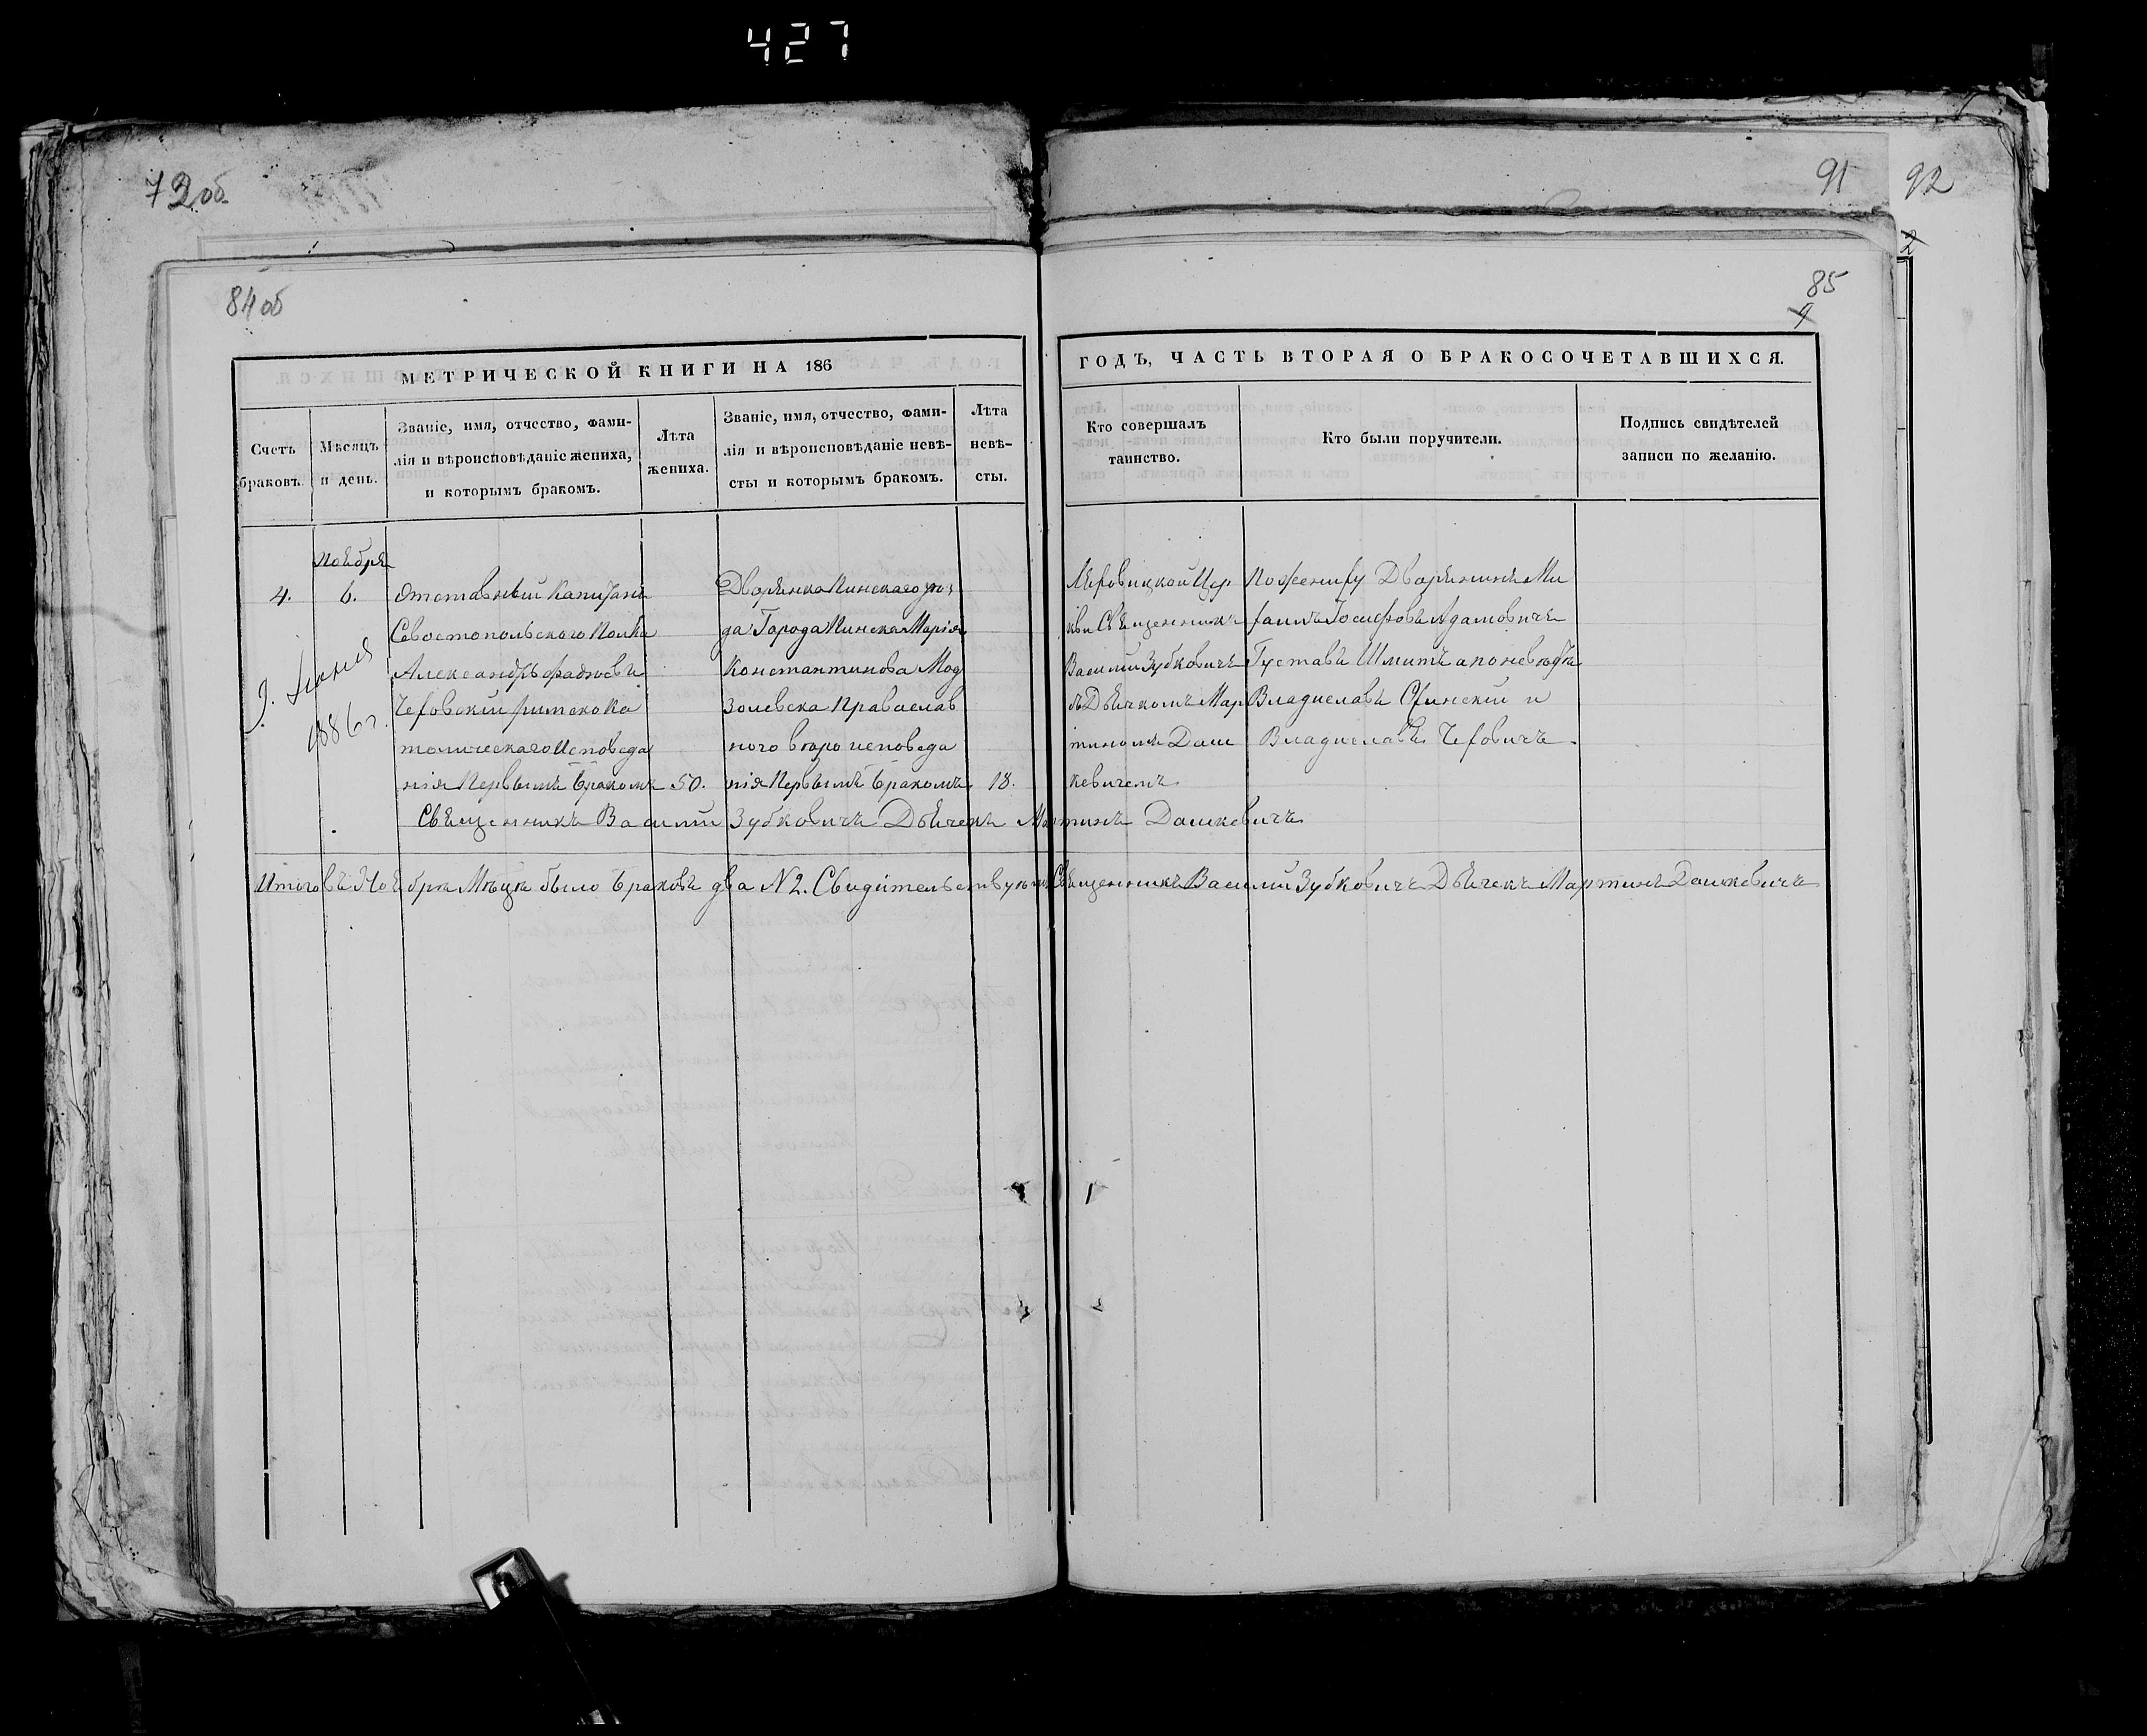 427
73 об.
91
92
2
84 об
85
4
МЕТРИЧЕСКОЙ КНИГИ НА 186
ГОДЪ, ЧАСТЬ ВТОРАЯ О БРАКОСОЧЕТАВШИХСЯ.
Счетъ
браковъ.
Мѣсяцъ
и день.
Званіе, имя, отчество, фами-
лія и вѣроисповѣданіе жениха,
и которымъ бракомъ.
Лѣта
жениха.
Званіе, имя, отчество, фами-
лія и вѣроисповѣданіе невѣ-
сты и которымъ бракомъ.
Лѣта
невѣ-
сты.
Кто совершалъ
таинство.
Кто были поручители.
Подпись свидѣтелей
записи по желанію.
4.
Ноября
6.
1886 г.
Отставный Капитанъ
Севостопольского Полка
Александръ
Римско Ка
толическаго Исповеда
нія Первымъ Бракомъ
50.
Дворянка Пинскаго уѣз
да Города Пинска Марія
Константинова Мод
золевска Православ
ного вѣроисповеда
нія Первымъ Бракомъ
18.
Цер
кви Священникъ
Василий Зубковичъ
съ Дьячкомъ Мар
тиномъ Даш
кевичемъ
По жениху Дворянинъ Ми
хаилъ Іосифовъ Адамовичъ
Густавъ Шмитъ а по невѣстѣ
Владиславъ и
Владиславъ
Священникъ Василий Зубковичъ Дьячекъ Мартинъ Дашкевичъ
Итого въ Ноябрѣ Мѣцѣ было браковъ два № 2. Свидѣтельствуютъ Священникъ Василий Зубковичъ Дьячекъ Мартинъ Дашкевичъ